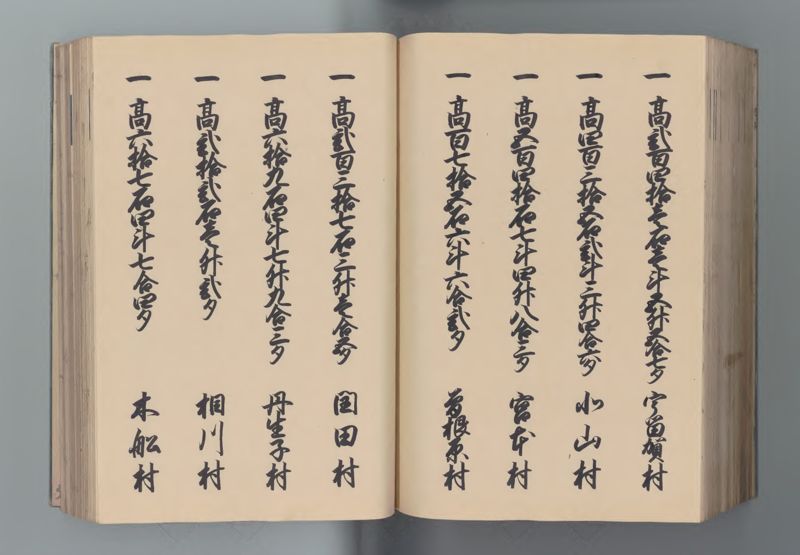 一 高弐百四拾壱石壱斗五升五合七夕 宇留賀村
一 高四百三拾五石弐斗三升四合六夕 小山村
一 高五百四拾石七斗四升八合三夕 宮本村
一 高百七拾五石六斗六合弐夕 曽根原村
一 高弐百三拾七石三升壱合五夕 国田村
一 高六拾九石四斗七升九合三夕 丹生子村
一 高弐拾弐石壱升弐夕 相川村
一 高六拾七石四斗七合四夕 木船村